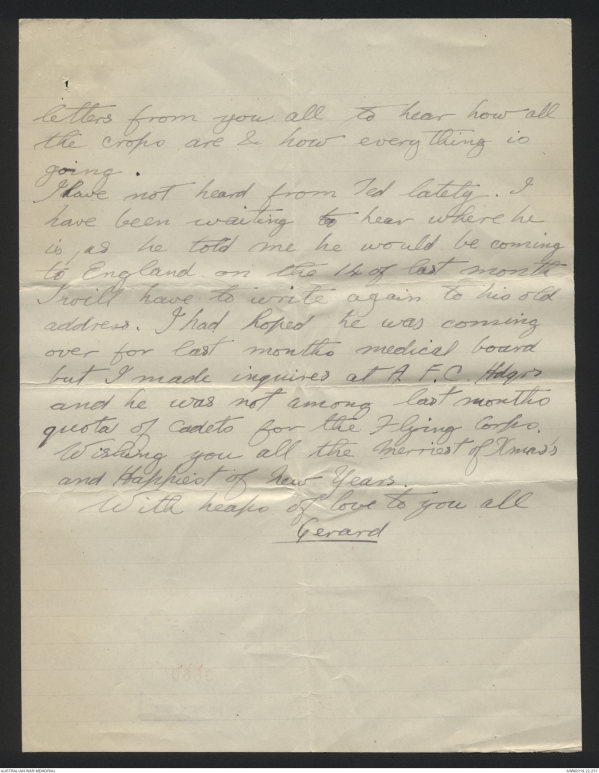 letters from you all to hear how all
the crops are & how everything is
going.
I have not heard from Ted lately. I
have been waiting to hear where he
is, as he told me he would be coming
to England on the 14 of last month
I will have to write again to his old
address. I had hoped he was coming
over for last months medical board
but I made inquires at A.F.C. Hdqrs
and he was not among last months
quota of Cadets for the Flying Corps.
Wishing you all the Merriest of Xmas's
and Happiest of New Years.
With heaps of love to you all
Gerard
AUSTRALIAN WAR MEMORIAL